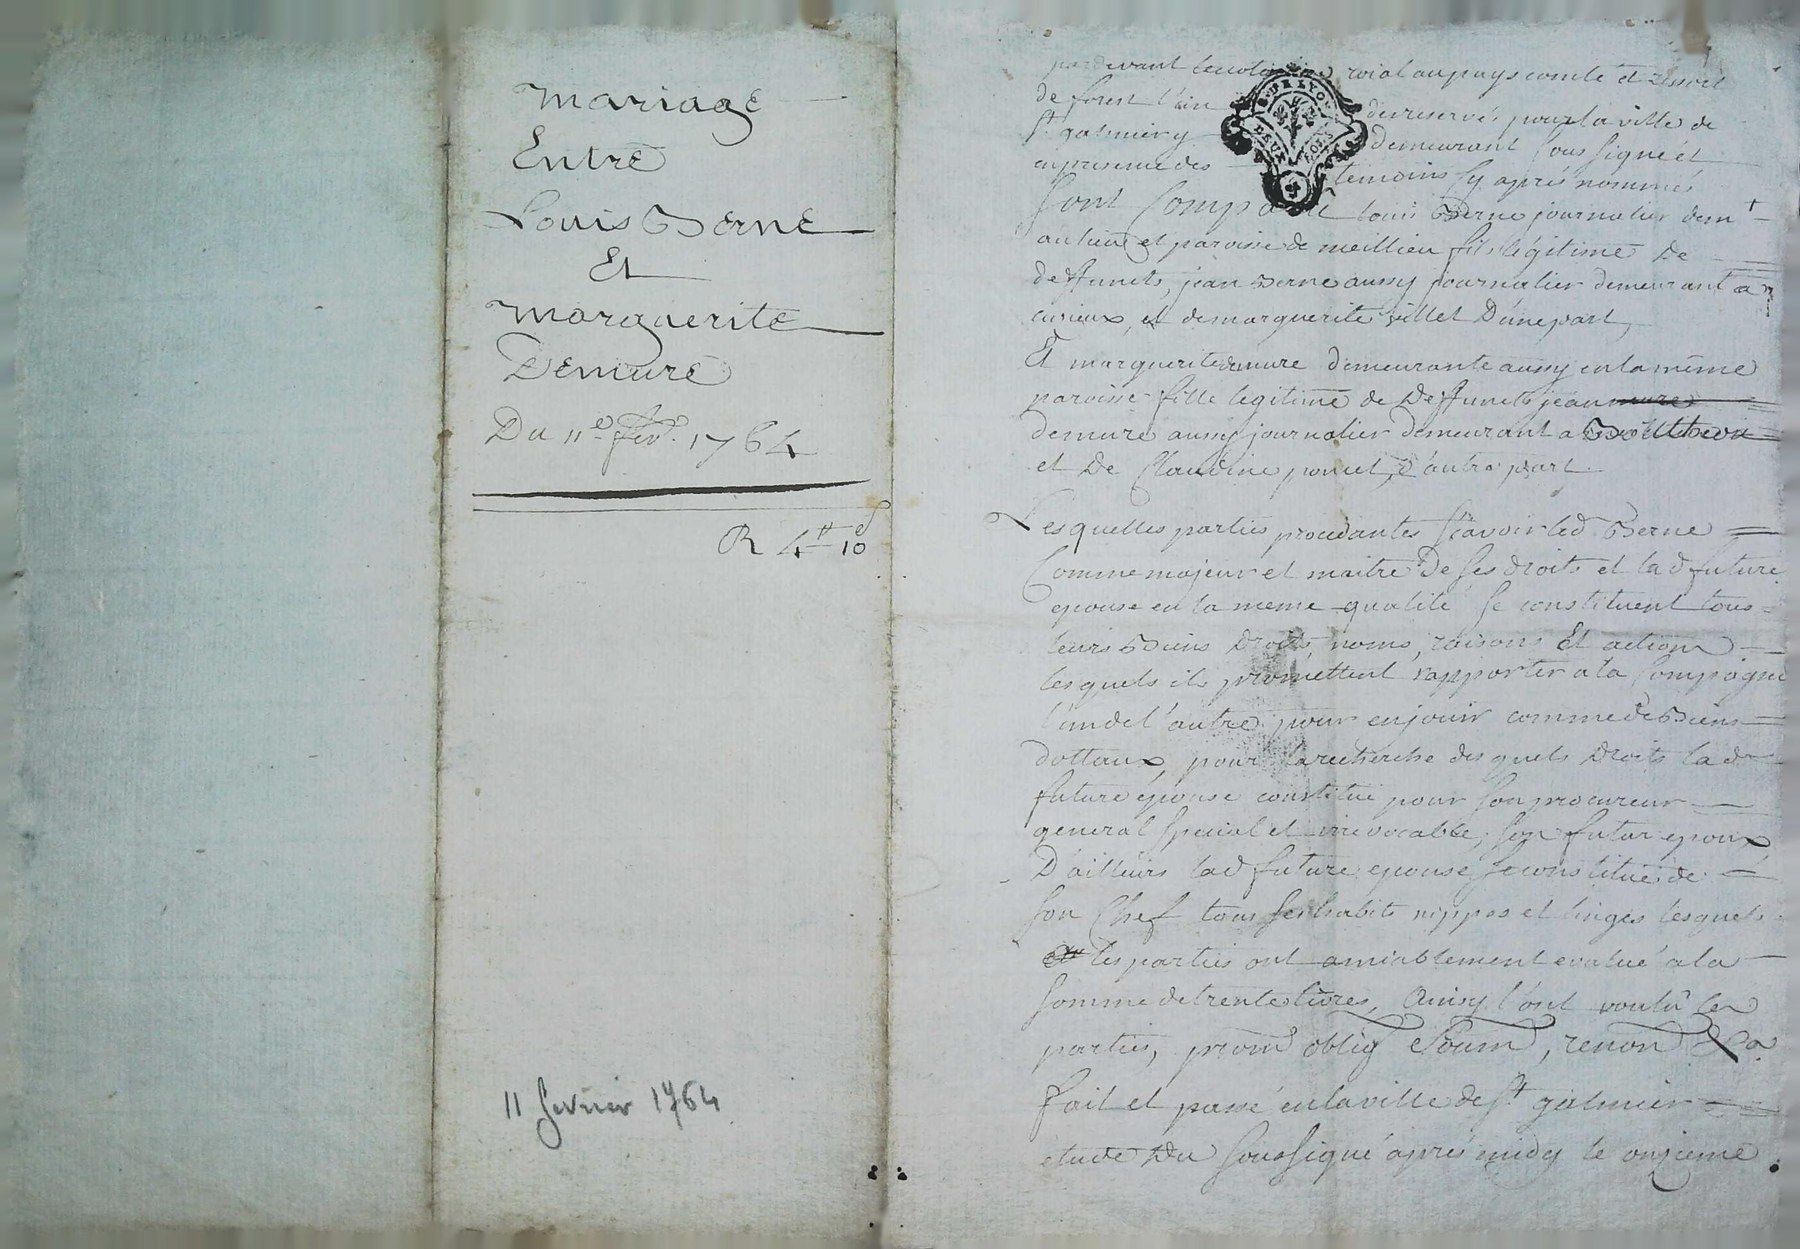 Mariage
Entre
Louis Berne
Et
Marguerite
Demure
Du 11e fev. 1764
R 4# 10s
11 fevrier 1764
pardevant le notaire roial au pays comté et ressort
de forest l'un des reservés pour la ville de
St galmier y demeurant soussigné et
en presence des temoins cy aprés nommés
Sont Comparu louis Berne journalier demt
au lieu et paroisse de meillieu fils légitime De
deffunets, jean Berne aussy journalier demeurant a
cuzieux, et de marguerite villet D'une part,
Et marguerite demure demeurante aussy en la même
paroisse fille legitime de Deffunets jean mure
demure aussy journalier demeurant a Boutheon
et De Claudine poncet, d'autre part.
Lesquelles parties procedantes sçavoir led Berne
Comme majeur et maitre De ses droits et lad future
epouse en la meme qualité se constituent tous
leurs Biens Droits, noms, raisons Et actions
lesquels ils promettent rapporter a la Compagnie
l'un de l'autre pour en jouir comme de Biens
dottaux, pour la recherche desquels Droits lad
future epouse constitue pour son procureur
general special et irrevocable, son futur epoux,
D'ailleurs lad future epouse se constitue de
son Chef tous ses habits nippes et linges lesquels
les parties ont amiablement evalué a la
somme de trente livres, Ainsy l'ont voulû les
parties, prom oblig Soum, renon &a
fait et passé en la ville de St galmier
étude Du soussigné aprés midy le onzieme